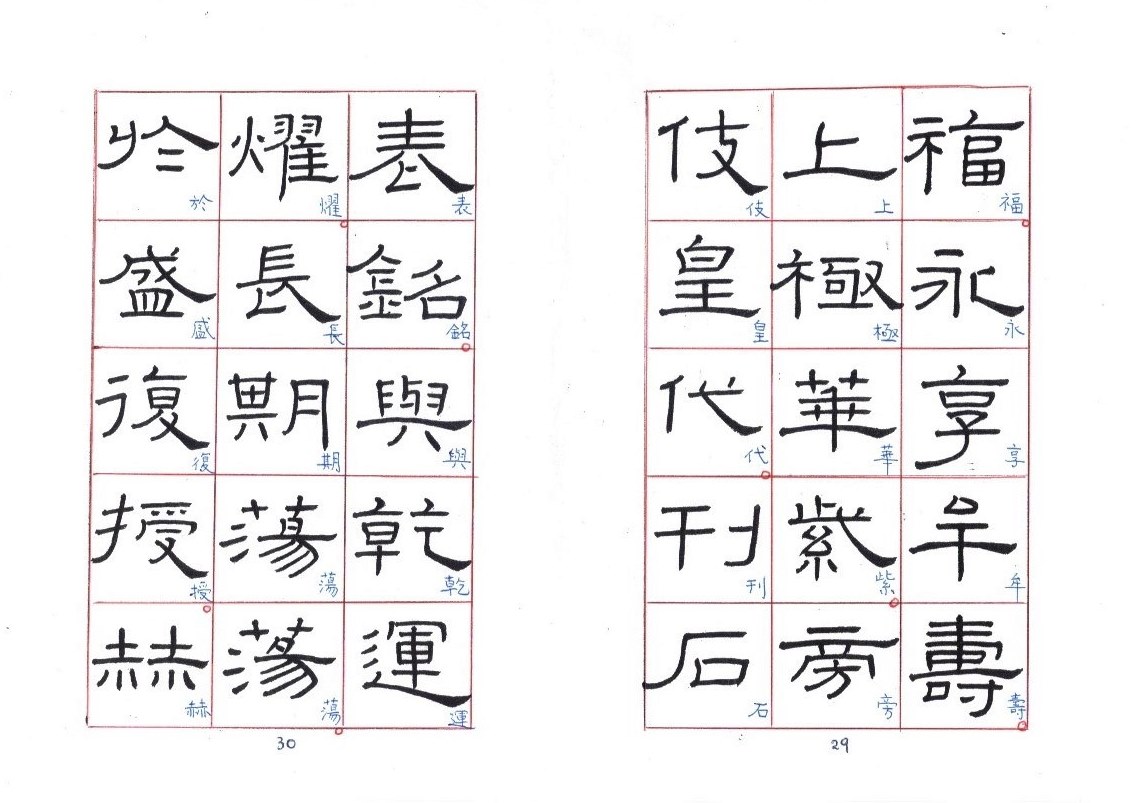 福永享牟壽
福永享牟壽
上極華紫旁
上極華紫旁
伎皇代刊石
伎皇代刊石
29
表銘與乾運
表銘與乾運
燿長期蕩蕩
燿長期蕩蕩
於盛復授赫
於盛復授赫
30